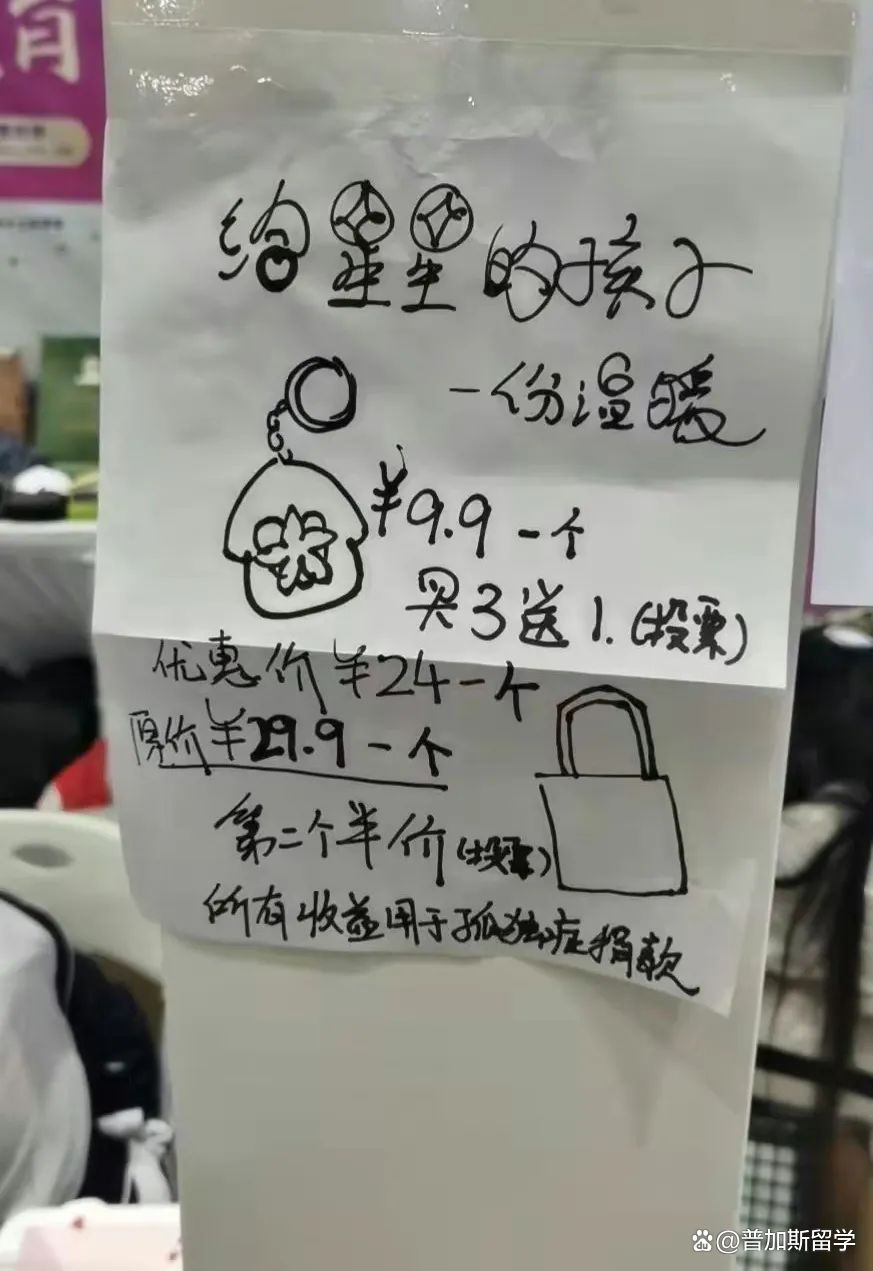 育
给星星的孩子
一份温暖
¥9.9 一个
买3送1.(投票)
优惠价¥24一个
原价¥29.9一个
第二个半价(投票)
所有收益用于孤独症捐款
@普加斯留学